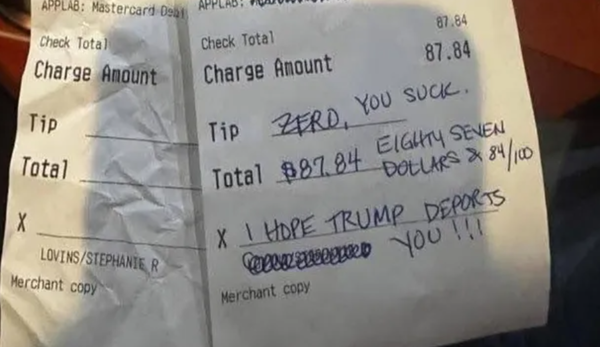 APPLAB: Mastercard Debi
Check Total
Charge Amount
Tip
Total
X
LOVINS/STEPHANIE R
Merchant copy
APPLAB:
87.84
Check Total
Charge Amount 87.84
Tip ZERO, YOU SUCK.
Total $87.84 EIGHTY SEVEN
DOLLARS & 84/100
X I HOPE TRUMP DEPORTS
YOU!!!
Merchant copy